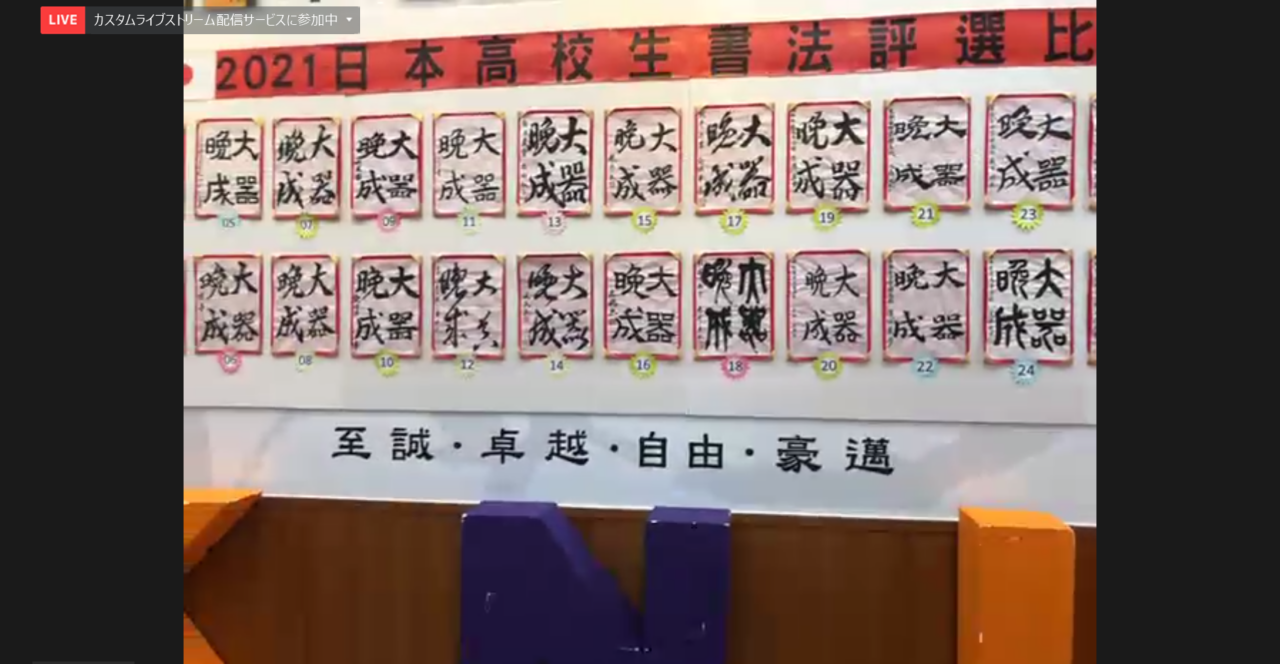 LIVE カスタムライブストリーム配信サービスに参加中
2021日本高校生書法評選比
大器晩成 大器晩成 大器晩成 大器晩成 大器晩成 大器晩成 大器晩成 大器晩成 大器晩成 大器晩成
05 07 09 11 13 15 17 19 21 23
大器晩成 大器晩成 大器晩成 大器晩成 大器晩成 大器晩成 大器晩成 大器晩成 大器晩成 大器晩成
06 08 10 12 14 16 18 20 22 24
至誠・卓越・自由・豪邁